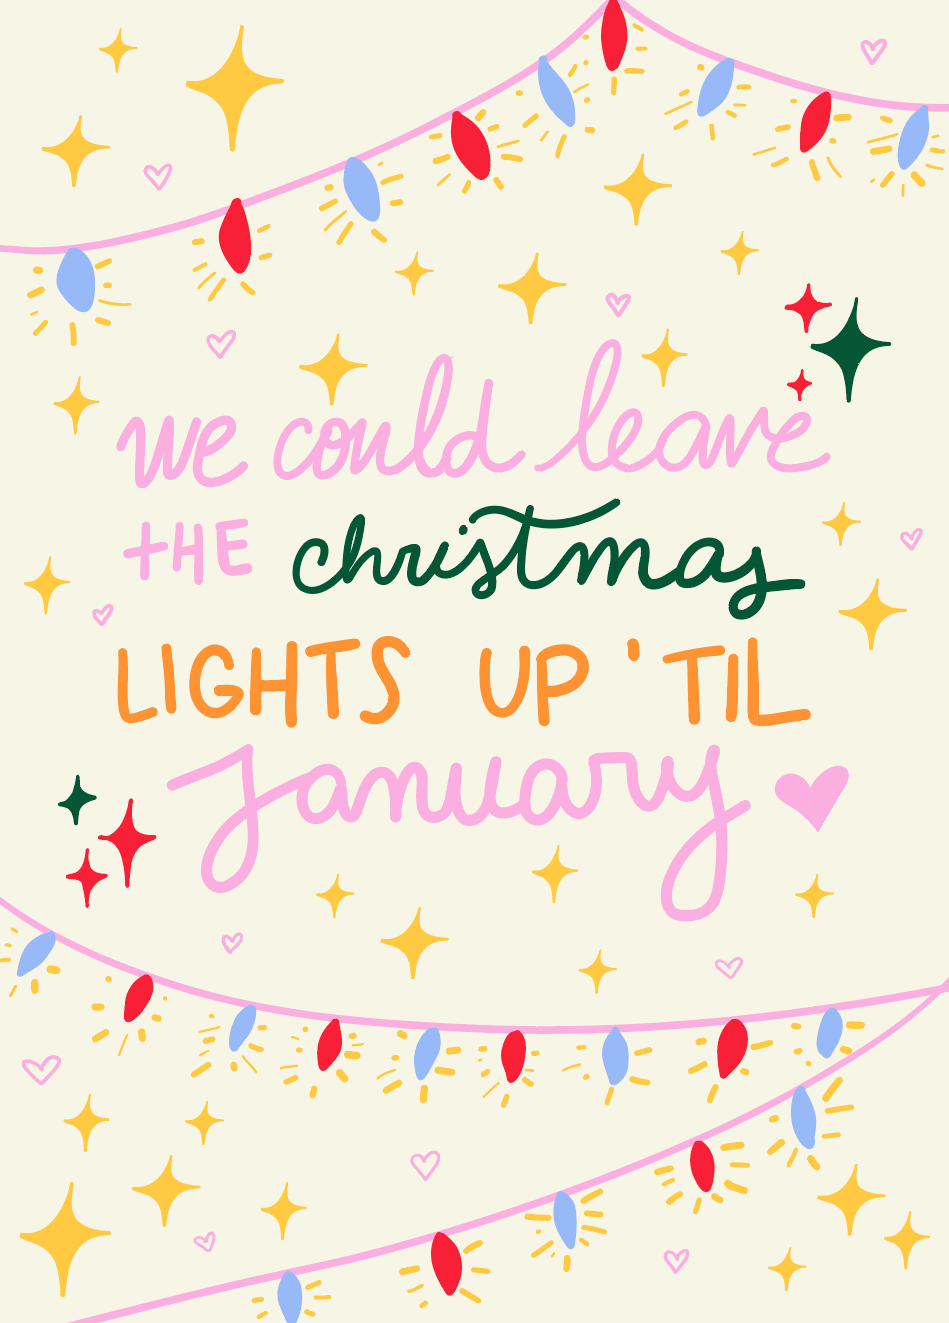 we could leave
THE christmas
LIGHTS UP 'TIL
january